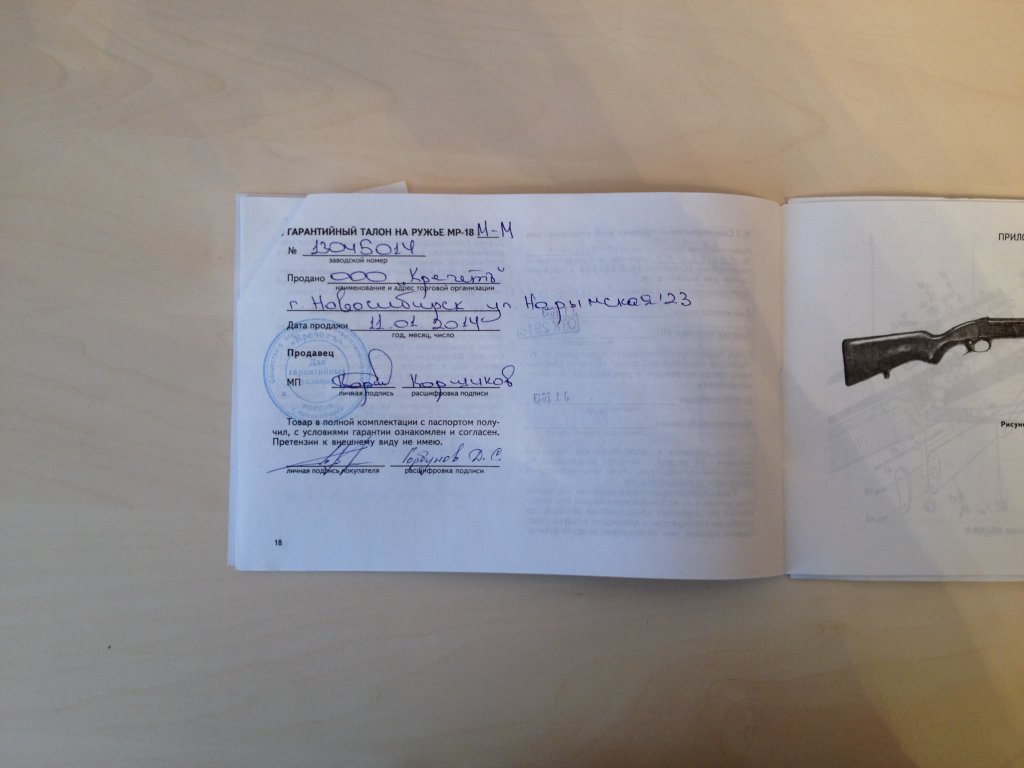 ГАРАНТИЙНЫЙ ТАЛОН НА РУЖЬЕ МР-18 М-М
№ 13045014
заводской номер
Продано ООО „Кречетъ"
наименование и адрес торговой организации
г. Новосибирск ул. Нарымская 23
Дата продажи 11.01.2014
год, месяц, число
Продавец
МП Коршиков
личная подпись расшифровка подписи
Кречетъ
Для
гарантийных
талонов
РОССИЯ
Товар в полной комплектации с паспортом полу-
чил, с условиями гарантии ознакомлен и согласен.
Претензии к внешнему виду не имею.
Горбунов Д.С.
личная подпись покупателя расшифровка подписи
18
ПРИЛО
Рисуно